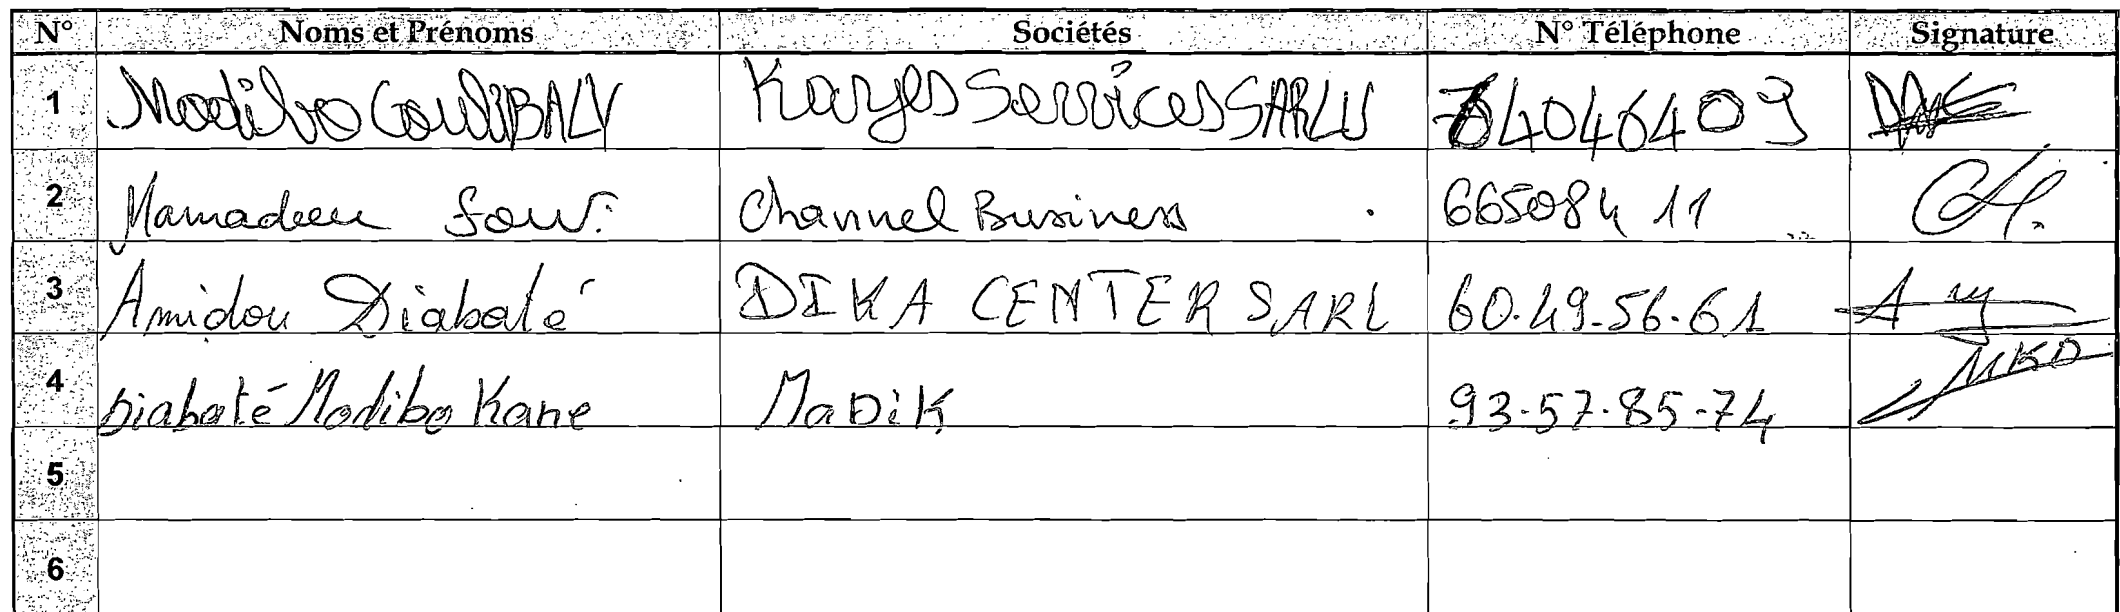 N° Noms et Prénoms Sociétés N° Téléphone Signature
1 Modibo CoulIBALY Kayes Services SARLU 64046409
2 Mamadou Sow. Channel Business 66508411
3 Amidou Diabaté DIKA CENTER SARL 60.49.56.61
4 Diabaté Modibo Kane MaDiK 93-57-85-74 MKD
5
6